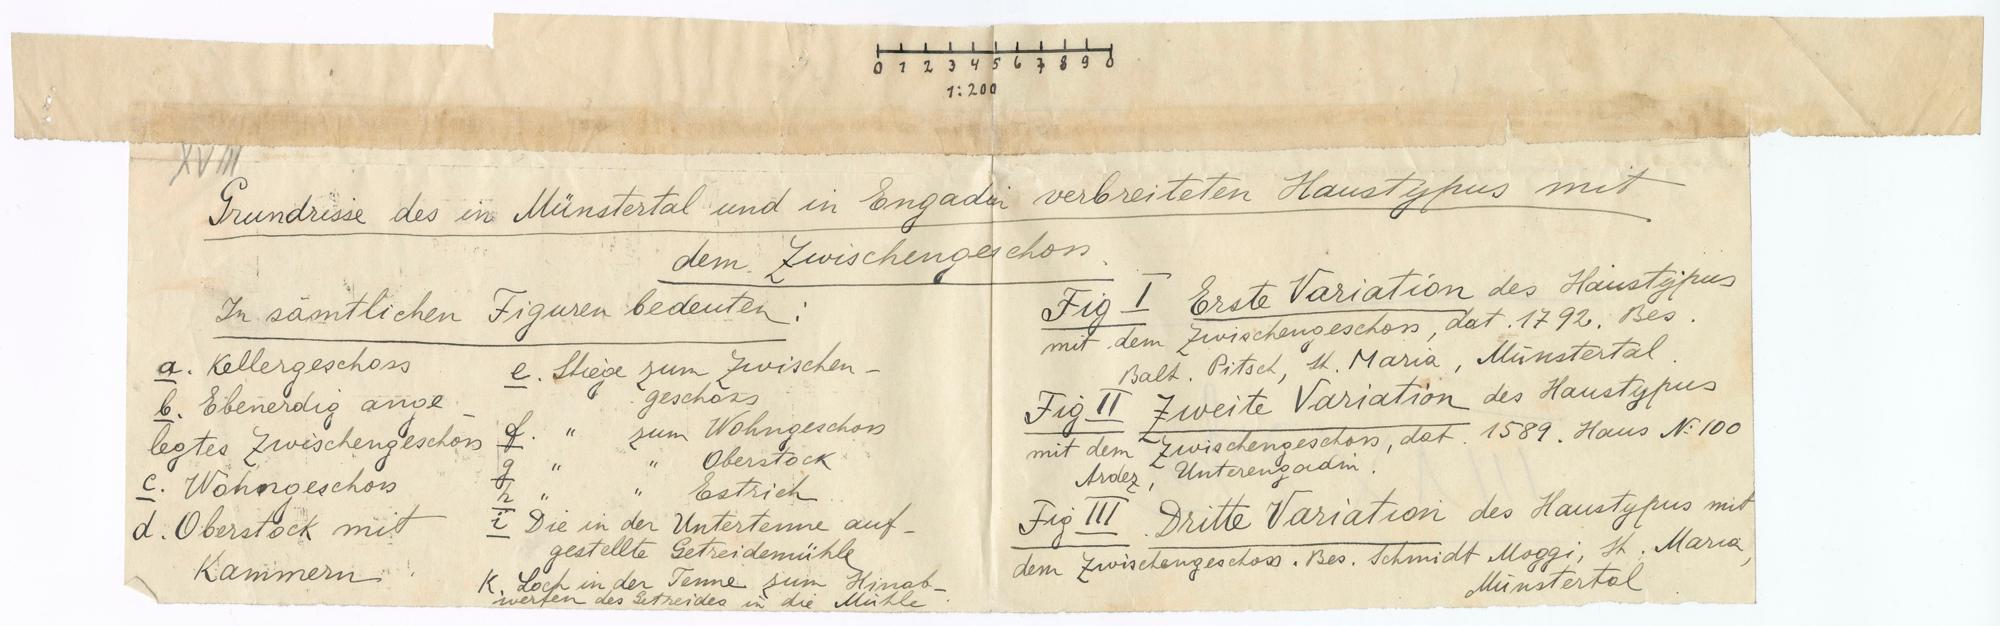 0 1 2 3 4 5 6 7 8 9 0
1:200
XVIII
Grundrisse des in Münstertal und in Engadin verbreiteten Haustypus mit
dem Zwischengeschoss.
In sämtlichen Figuren bedeuten:
a. Kellergeschoss
b. Ebenerdig ange-
legtes Zwischengeschoss
c. Wohngeschoss
d. Oberstock mit
Kammern.
e. Stiege zum Zwischen-
geschoss
f. " zum Wohngeschoss
g " " Oberstock
h " " Estrich
i Die in der Untertenne auf-
gestellte Getreidemühle
K. Loch in der Tenne zum Hinab-
werfen des Getreides in die Mühle.
Fig I Erste Variation des Haustypus
mit dem Zwischengeschoss, dat. 1792. Bes.
Balt. Pitsch, St. Maria, Münstertal.
Fig II Zweite Variation des Haustypus
mit dem Zwischengeschoss, dat. 1589. Haus No 100
Ardez, Unterengadin.
Fig III. Dritte Variation des Haustypus mit
dem Zwischengeschoss. Bes. Schmidt Moggi, St. Maria,
Münstertal